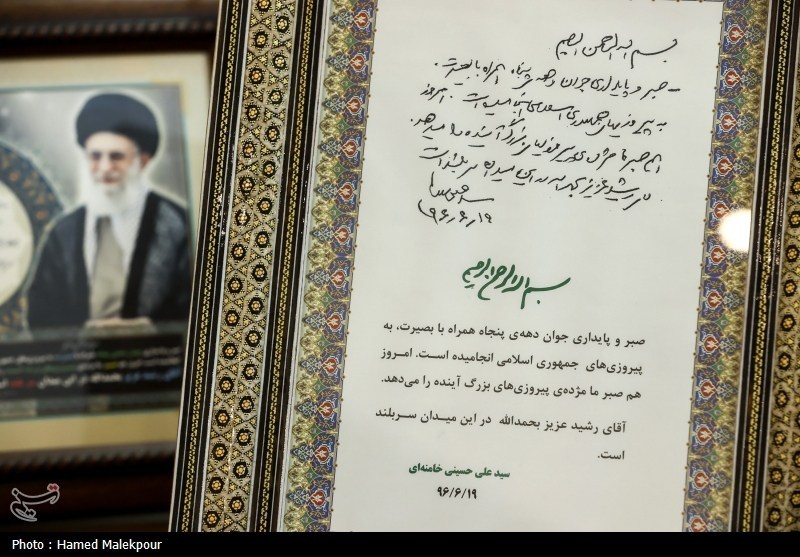 بسم الله الرحمن الرحیم
صبر و پایداری جوان دهه‌ی پنجاه همراه با بصیرت
به پیروزیهای جمهوری اسلامی انجامیده است. امروز
هم صبر ما مژده‌ی پیروزیهای بزرگ آینده را میدهد.
آقای رشید عزیز بحمدالله در این میدان سربلند است
۹۶/۶/۱۹
بسم الله الرحمن الرحیم
صبر و پایداری جوان دهه‌ی پنجاه همراه با بصیرت، به
پیروزی‌های جمهوری اسلامی انجامیده است. امروز
هم صبر ما مژده‌ی پیروزی‌های بزرگ آینده را می‌دهد.
آقای رشید عزیز بحمدالله در این میدان سربلند
است.
سید علی حسینی خامنه‌ای
۹۶/۶/۱۹
تسنیم
Photo : Hamed Malekpour